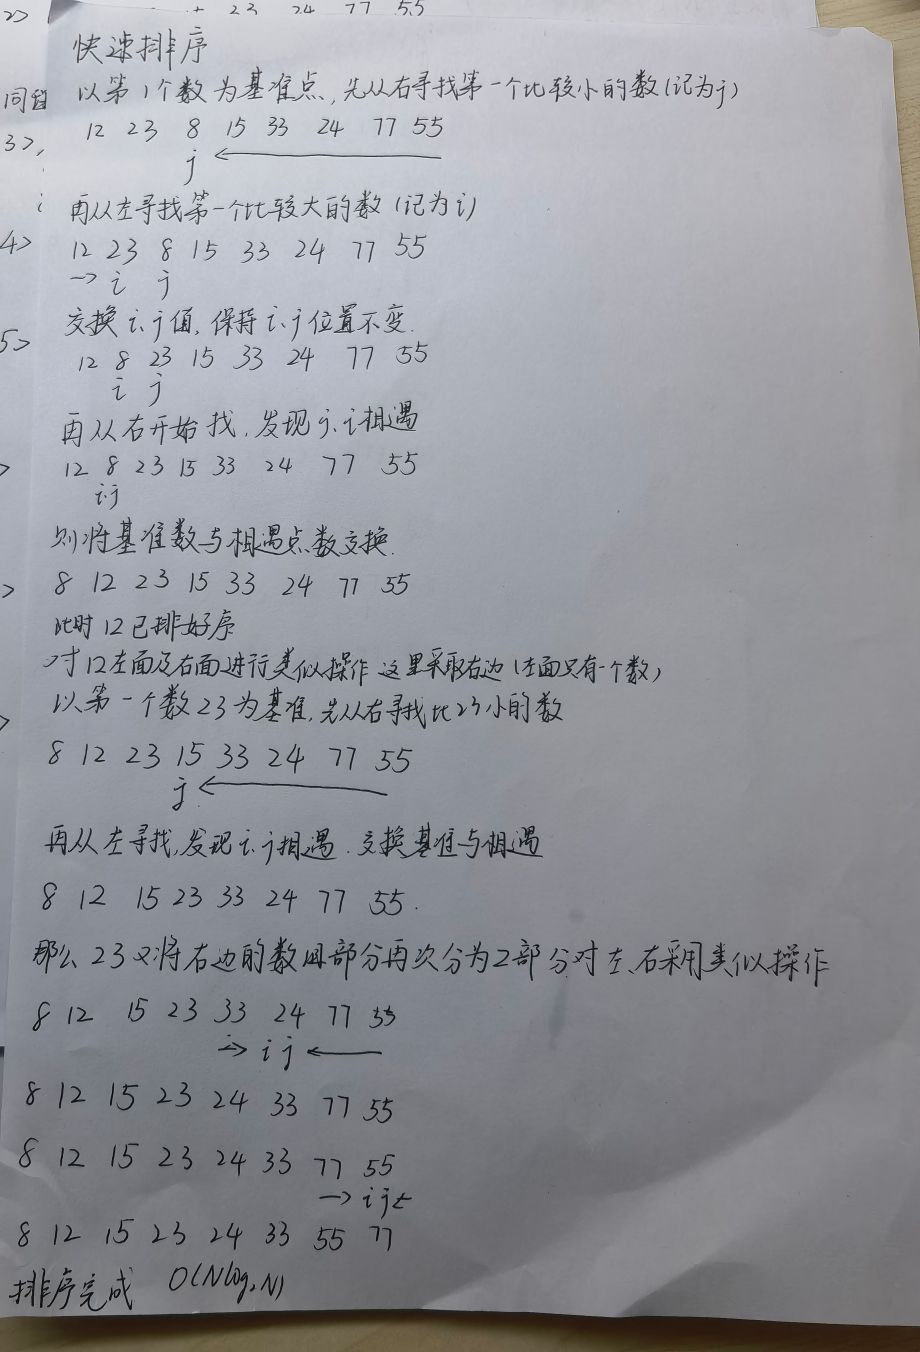 2>
23 24 77 55
快速排序
同
以第1个数为基准点,先从右寻找第一个比较小的数(记为j)
3>,
12 23 8 15 33 24 77 55
j
再从左寻找第一个比较大的数(记为i)
4>
12 23 8 15 33 24 77 55
→ i j
交换i、j值,保持i、j位置不变.
5>
12 8 23 15 33 24 77 55
i j
再从右开始找,发现j、i相遇
12 8 23 15 33 24 77 55
i.j
则将基准数与相遇点数交换.
8 12 23 15 33 24 77 55
此时12已排好序
对12左面及右面进行类似操作 这里采取右边(左面只有一个数)
以第一个数23为基准,先从右寻找比23小的数
8 12 23 15 33 24 77 55
j ←
再从左寻找,发现i、j相遇.交换基准与相遇
8 12 15 23 33 24 77 55.
那么23又将右边的数组部分再次分为2部分.对左、右采用类似操作
8 12 15 23 33 24 77 55
→ i j ←
8 12 15 23 24 33 77 55
8 12 15 23 24 33 77 55
→ i j ←
8 12 15 23 24 33 55 77
排序完成 O(Nlog₂N)